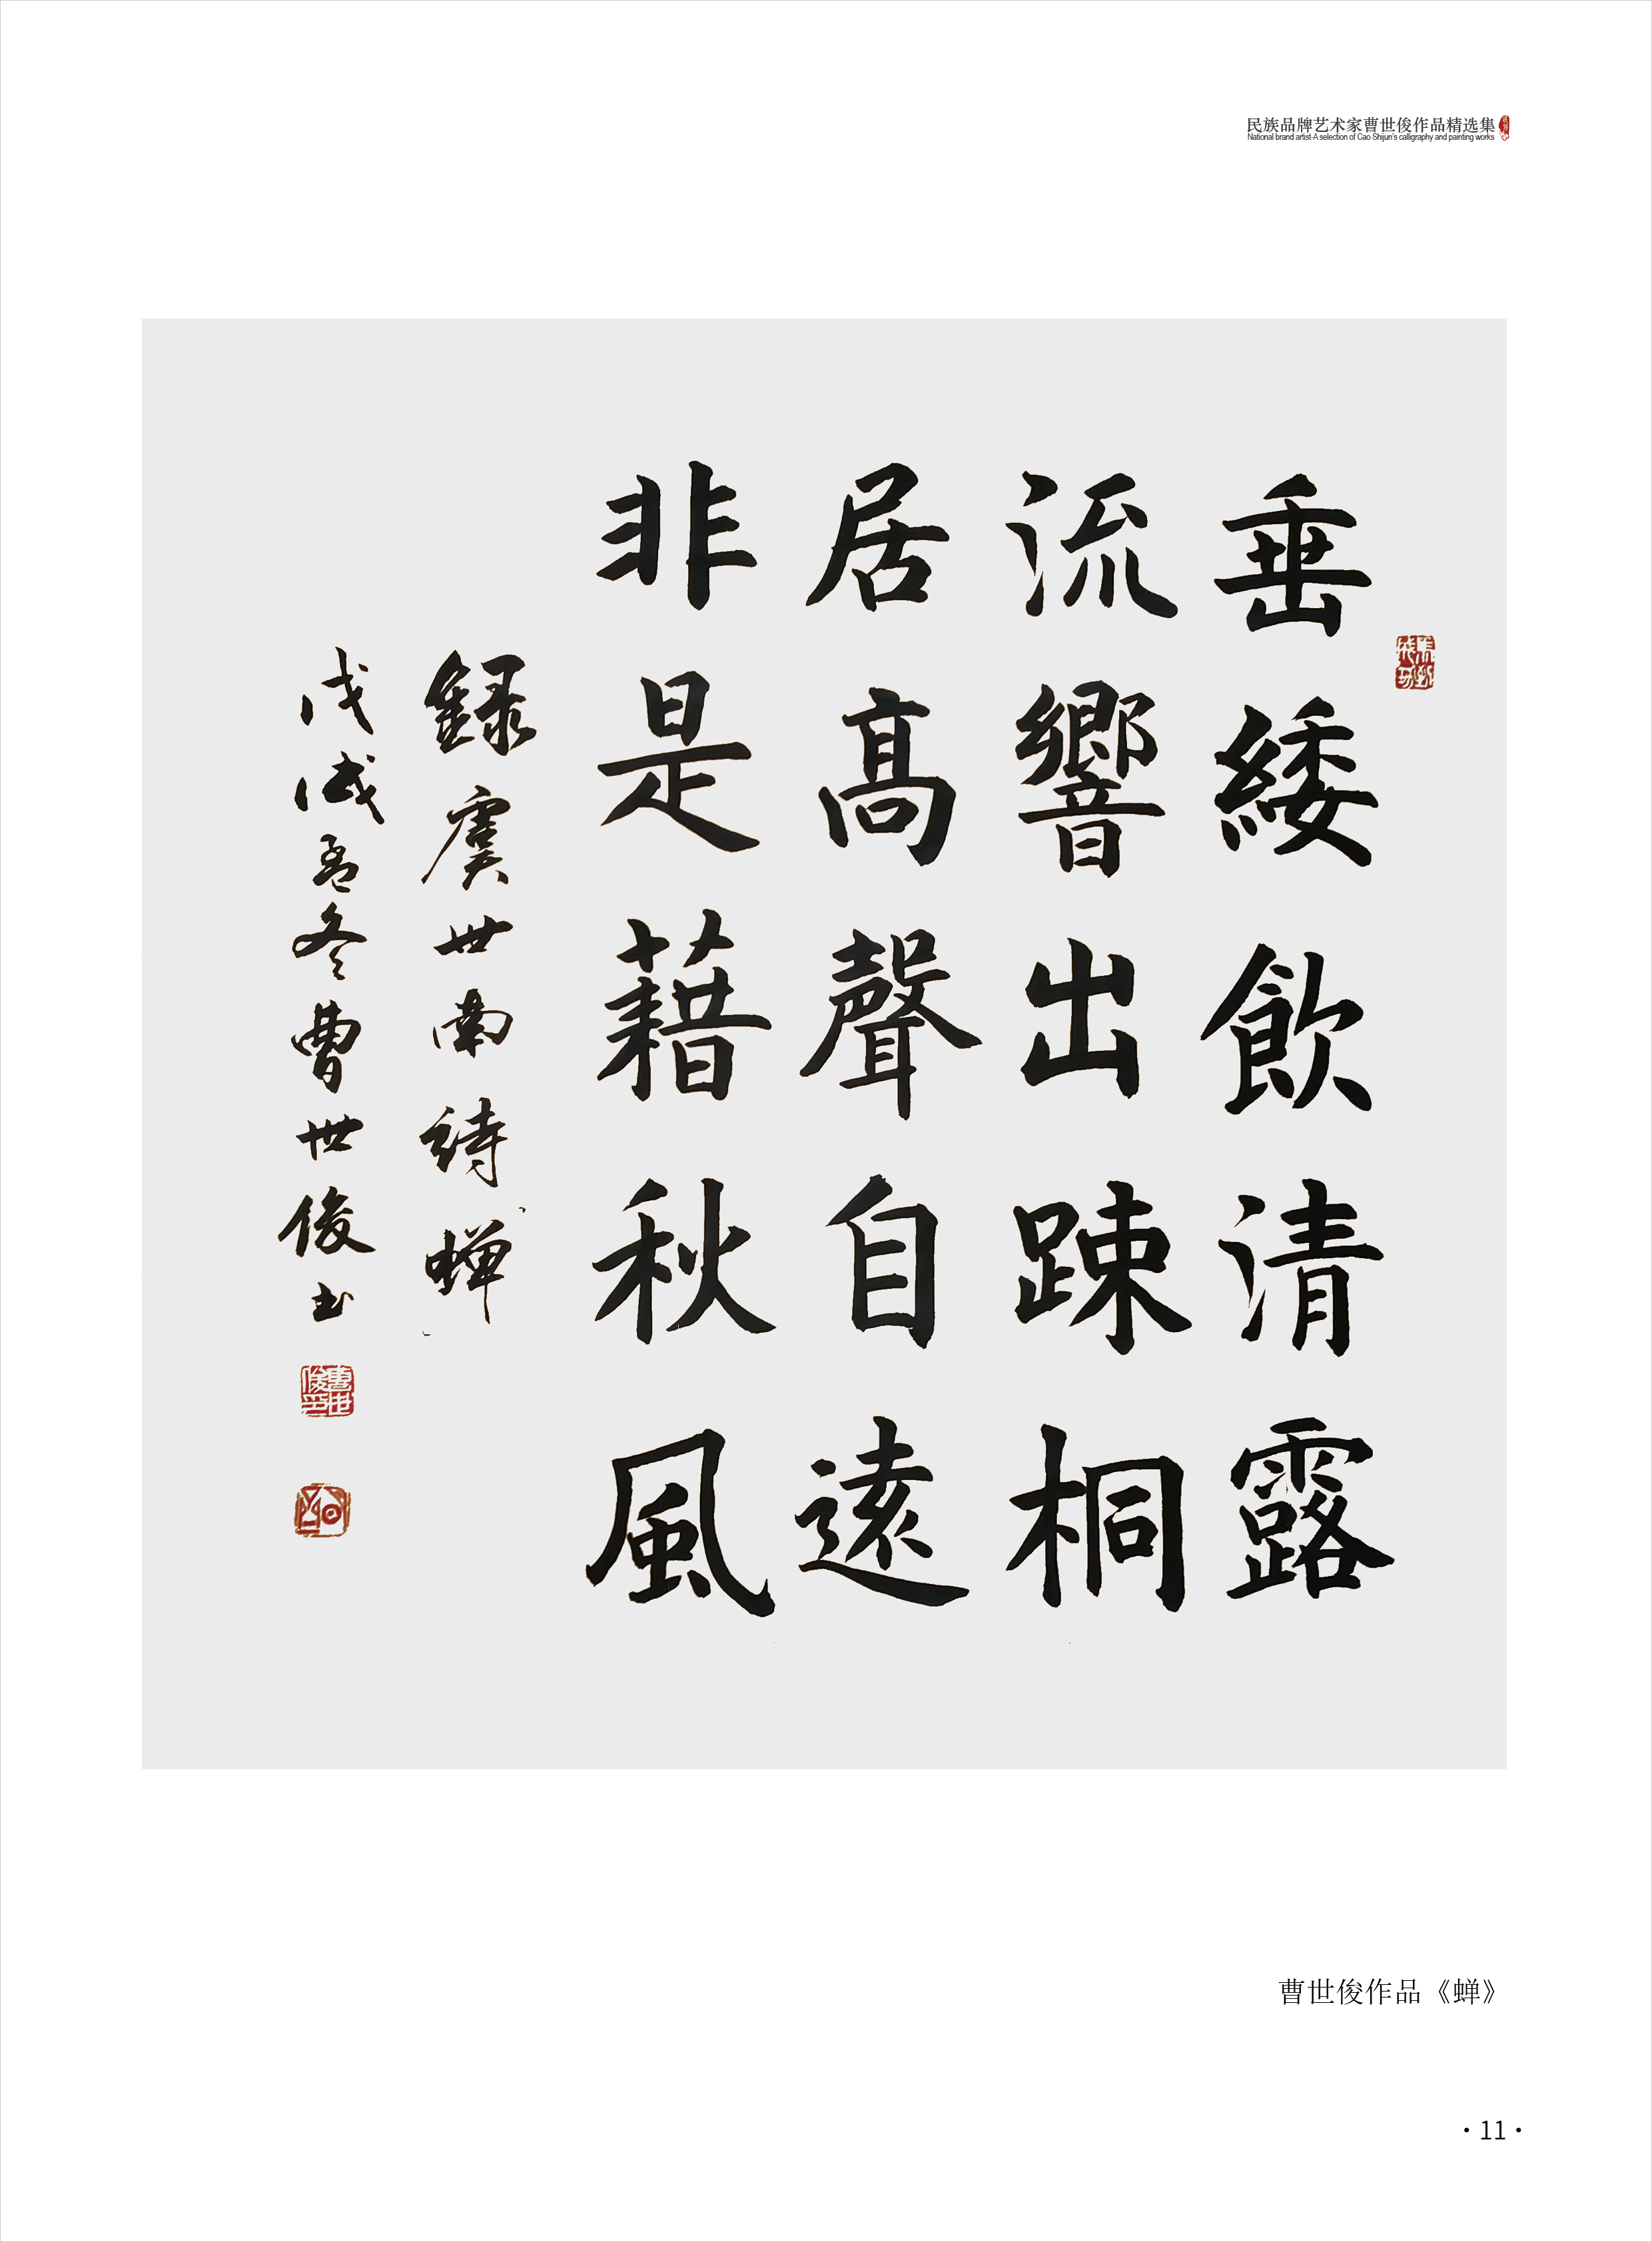 民族品牌艺术家曹世俊作品精选集
National brand artist-A selection of Cao Shijun's calligraphy and painting works
垂緌飲清露
流響出踈桐
居高聲自遠
非是藉秋風
録虞世南詩蝉
戊戌孟冬曹世俊书
曹世俊印
曹世俊作品《蝉》
·11·